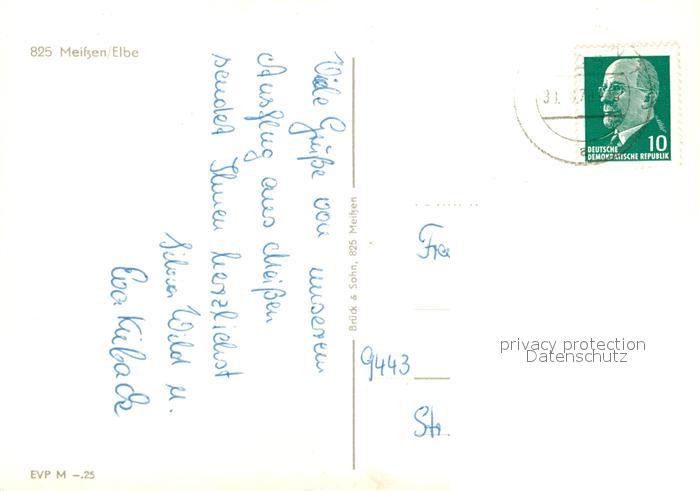 825 Meißen/Elbe
Viele Grüße von unserem
Ausflug aus Meißen
sendet Ihnen herzlichst
Silvia Wild u.
Eva Kuback
Brück & Sohn, 825 Meißen
EVP M –.25
DEUTSCHE
DEMOKRATISCHE REPUBLIK
10
Fra
9443
Str.
privacy protection
Datenschutz